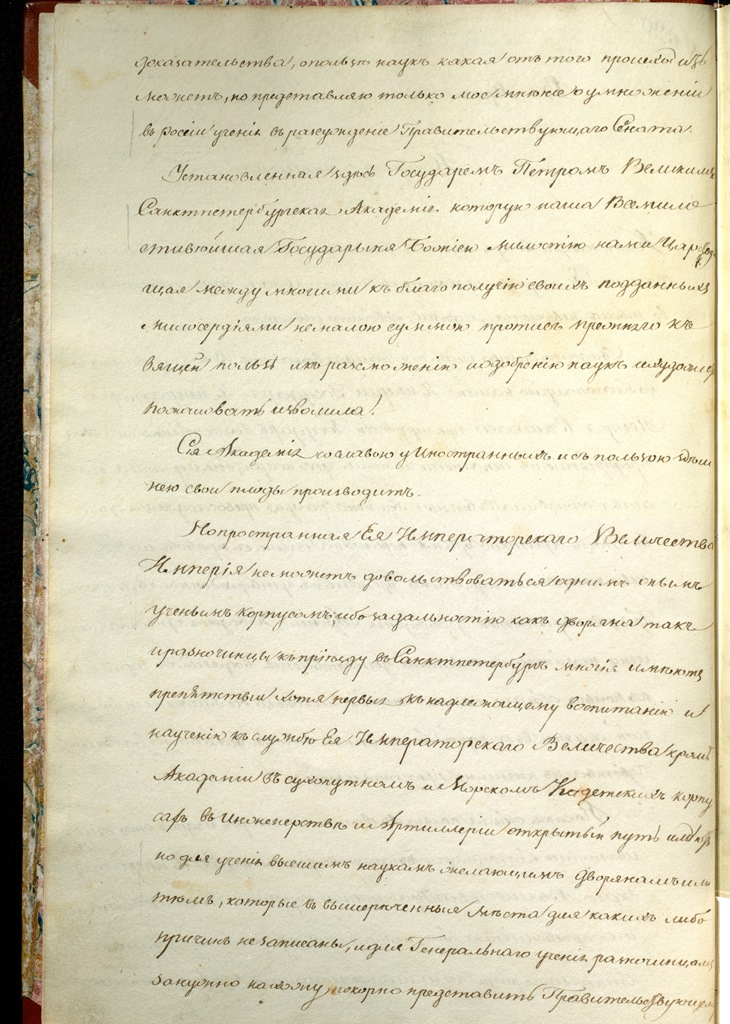 доказательства, о пользѣ наукъ какая отъ того произходить
можетъ, но представляю только мое мнѣнїе о умноженїи
въ россїи ученїя въ разсужденїе Правительствующаго Сената.
Установленная здѣсь Государемъ Петромъ Великимъ
Санктпетербургская Академїя, которую наша Всемило
стивѣйшая Государыня Божїею милостїю нами Царствую
щая между многими къ благополучїю своихъ подданныхъ
милосердїями не малою суммою противъ прежняго къ
вящей пользѣ и къ размноженїю и ободренїю наукъ
пожаловать изволила.
Сїя Академїя со славою у Иностранныхъ и съ пользою здѣш
нею свои плоды производитъ.
Но пространная Ея Императорскаго Величества
Имперїя не можетъ довольствоваться однимъ онымъ
ученымъ корпусомъ, ибо за дальностїю какъ дворяна такъ
и разночинцы къ прїѣзду въ Санктпетербургъ многїя имѣютъ
препятствїи хотя первыя къ надлежащему воспитанїю и
наученїю къ службѣ Ея Императорскаго Величества кромѣ
Академїи въ сухопутномъ и Морскомъ Кадетскихъ корпу
сахъ въ Инженерствѣ и Артиллерїи открытый путь имѣютъ
но для ученїя высшимъ наукамъ желающимъ дворянамъ или
тѣмъ, которые въ вышереченныя мѣста для какихъ либо
причинъ не записаны, и для Генеральнаго ученїя разночинцамъ
за нужно нахожу покорно представить Правительствующему